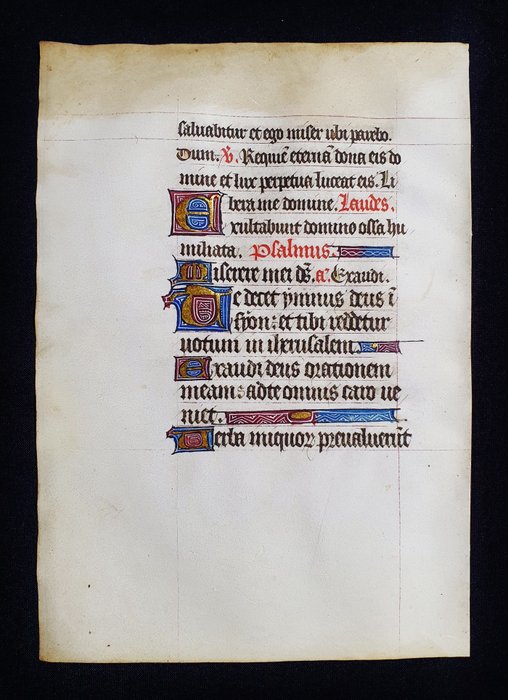 saluabitur et ego miser ubi parebo.
Dum. V. Requiē eternā dona eis do
mine et lux perpetua luceat eis. Li
bera me domine. Laudes.
Exultabunt domino ossa hu
miliata. Psalmus.
Miserere mei dē. a. Exaudi.
Te decet ymnus deus ī
syon: et tibi reddetur
uotum in iherusalem.
Exaudi deus orationem
meam: ad te omnis caro ue
niet.
Verba iniquor preualuerūt